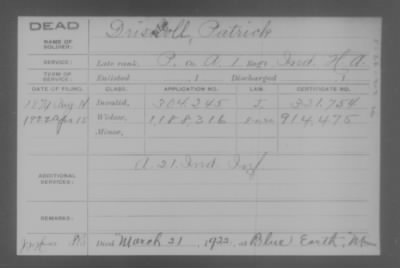 DEAD
NAME OF SOLDIER: Driscoll, Patrick
SERVICE: Late rank, P. in A, 1 Regt. Ind. H. A.
TERM OF SERVICE: Enlisted , 1 Discharged , 1
DATE OF FILING. CLASS. APPLICATION NO. LAW. CERTIFICATE NO.
Invalid, 304,245 331,754
1922 Apr 15 Widow, 1,188,316 914,475
Minor,
ADDITIONAL SERVICES: A. 21 Ind Inf
REMARKS:
Died March 21, 1922, at Blue Earth,